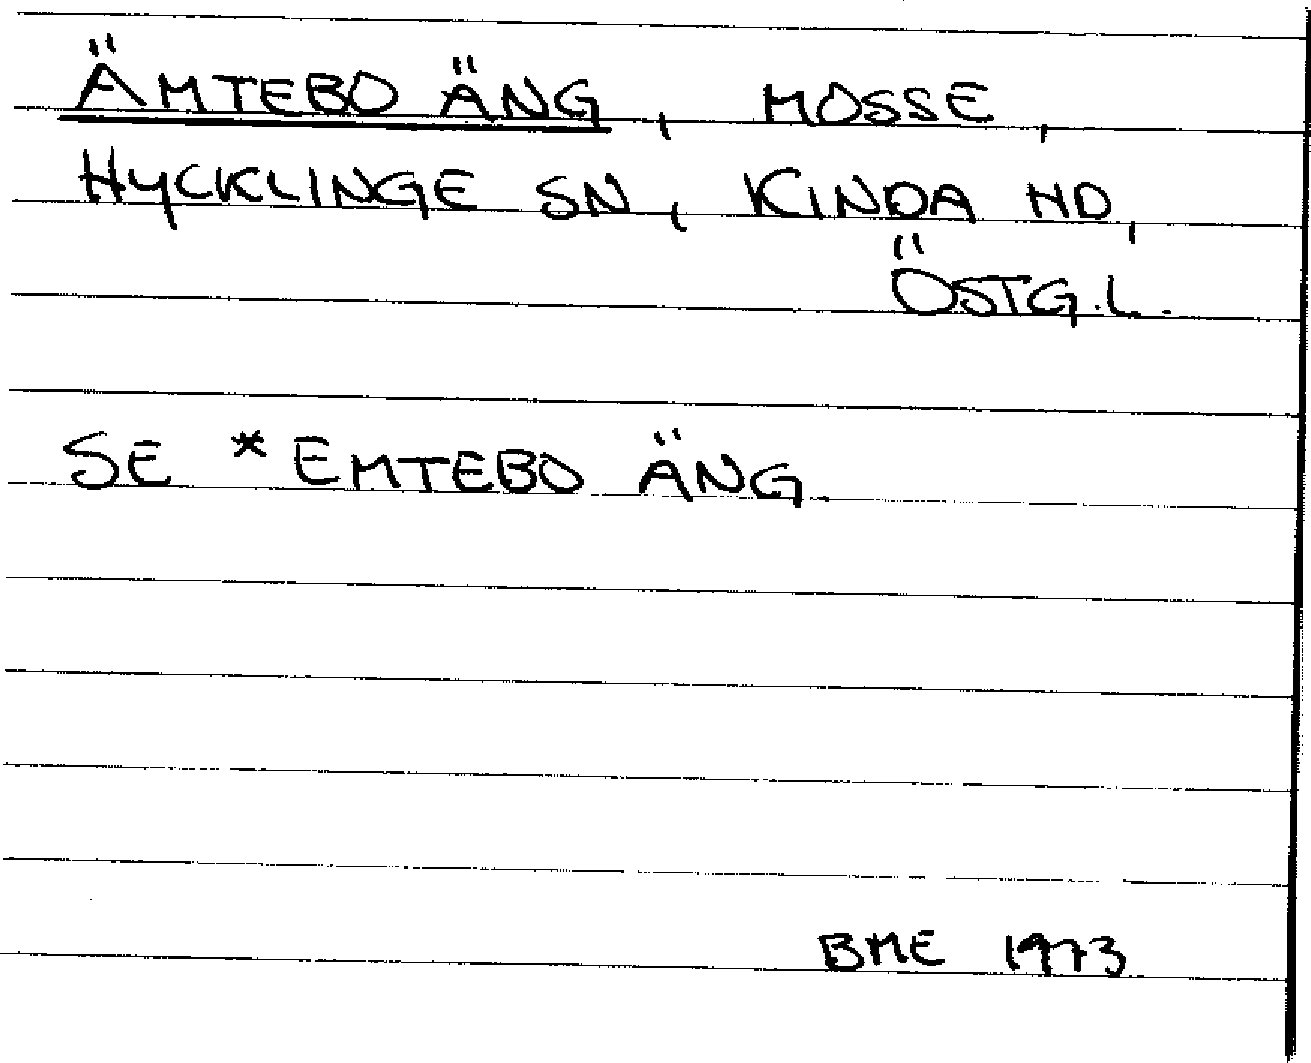 ÄMTEBO ÄNG, MOSSE,
HYCKLINGE SN, KINDA HD,
ÖSTG.L.
SE *EMTEBO ÄNG
BME 1973